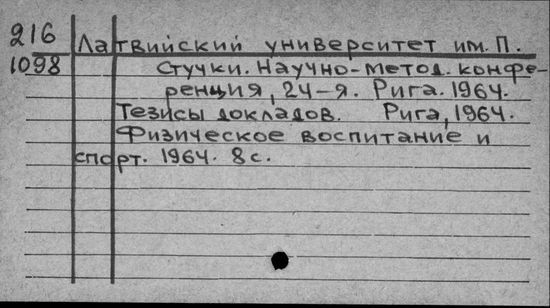 216
Латвийский университет им. П.
1098
Стучки. Научно-метод. конфе-
ренция, 24-я. Рига. 1964.
Тезисы докладов. Рига, 1964.
Физическое воспитание и
спорт. 1964. 8 с.